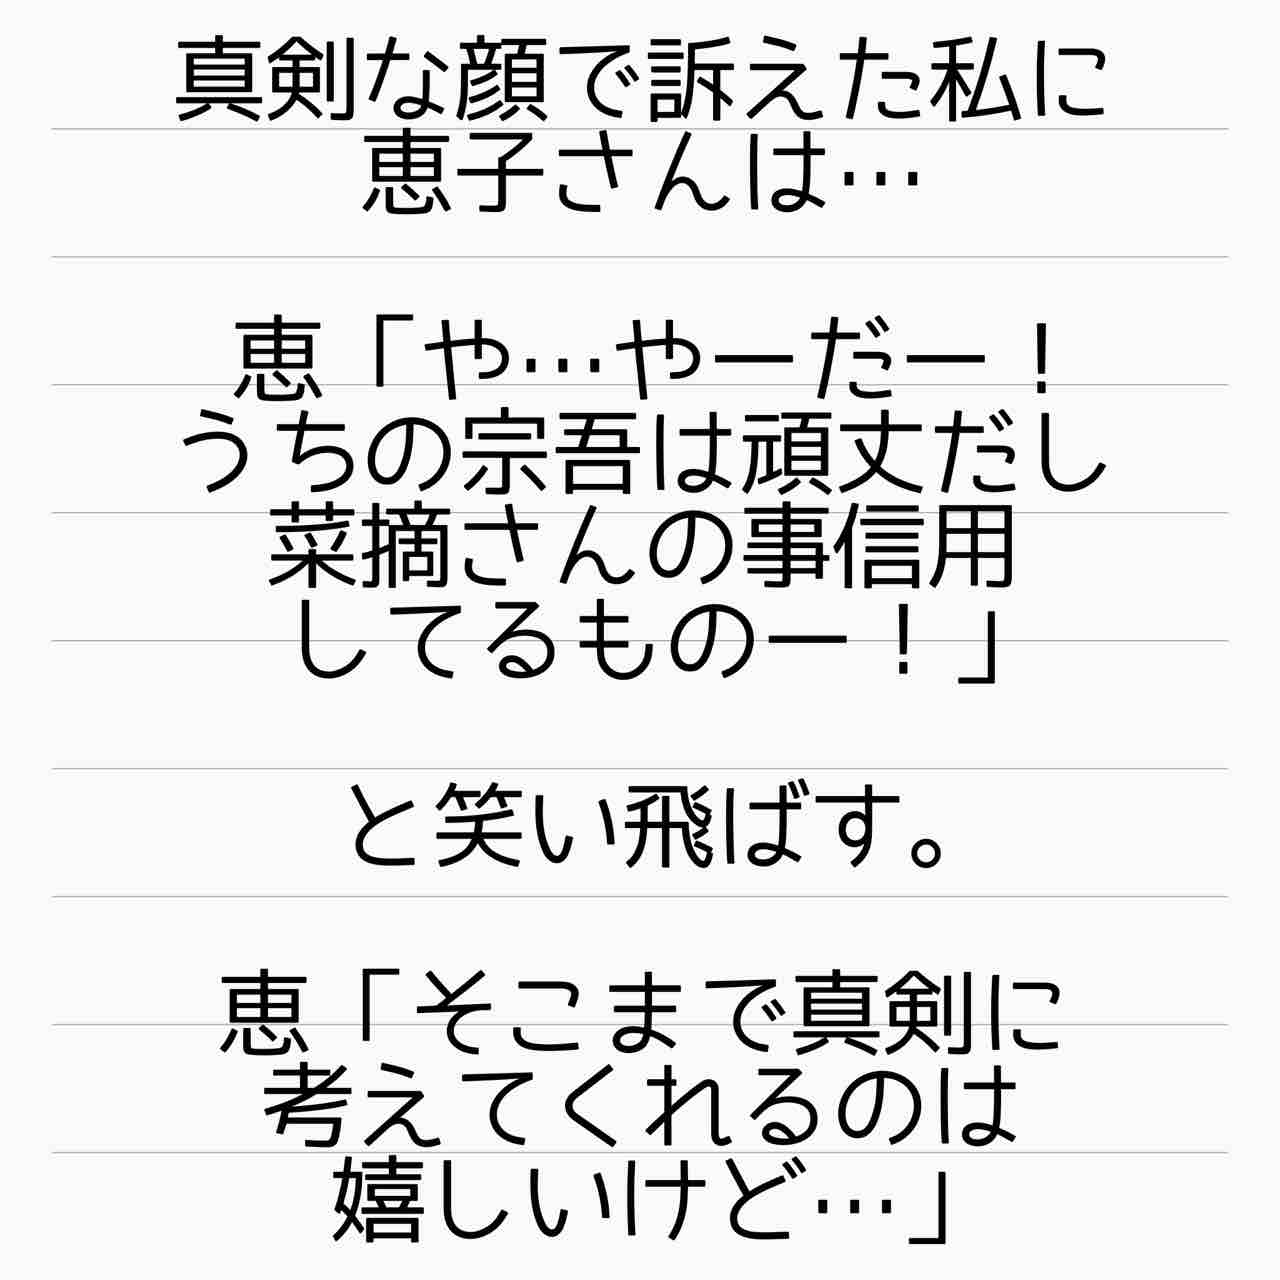 真剣な顔で訴えた私に
恵子さんは…
恵「や…やーだー！
うちの宗吾は頑丈だし
菜摘さんの事信用
してるものー！」
と笑い飛ばす。
恵「そこまで真剣に
考えてくれるのは
嬉しいけど…」